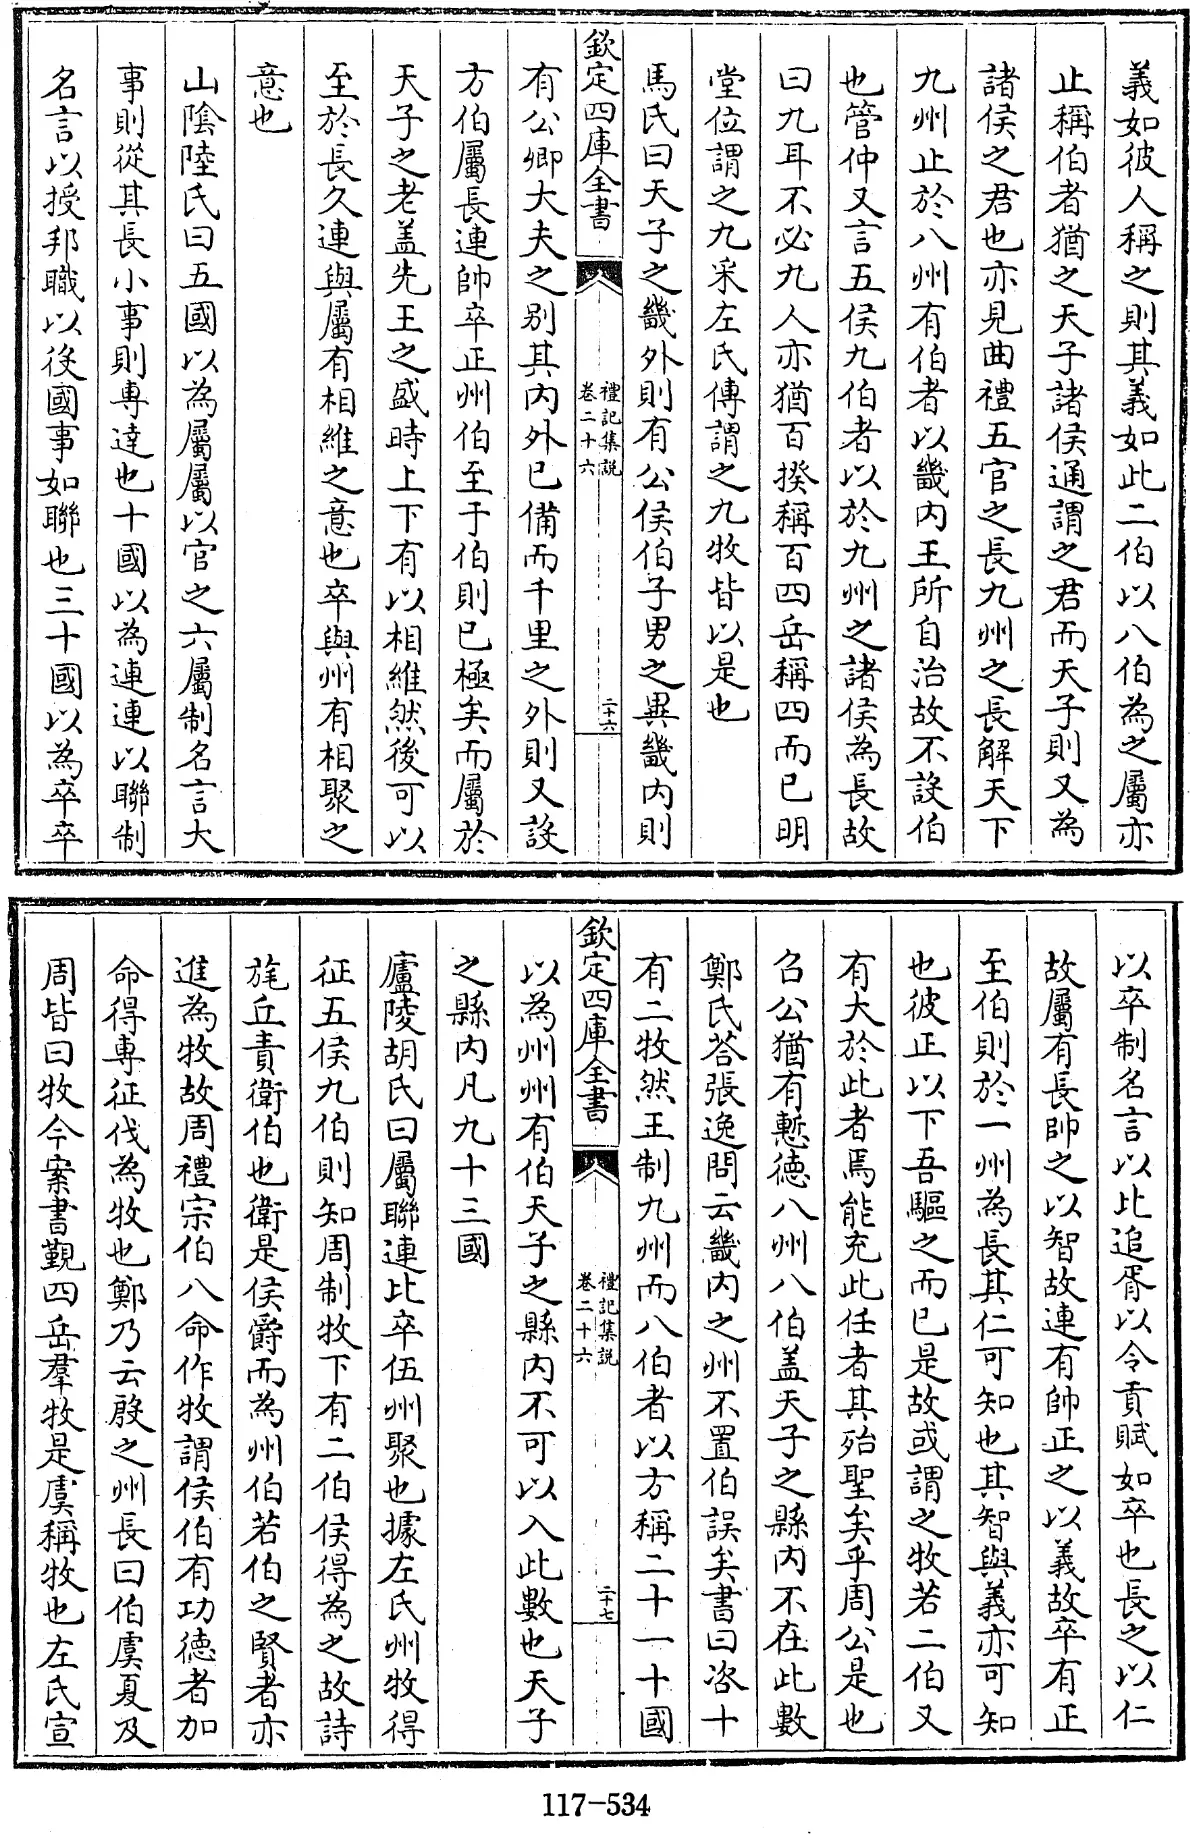 義如彼人稱之則其義如此二伯以八伯為之屬亦
止稱伯者猶之天子諸侯通謂之君而天子則又為
諸侯之君也亦見曲禮五官之長九州之長解天下
九州止於八州有伯者以畿内王所自治故不設伯
也管仲又言五侯九伯者以於九州之諸侯為長故
曰九耳不必九人亦猶百揆稱百四岳稱四而已明
堂位謂之九采左氏傳謂之九牧皆以是也
馬氏曰天子之畿外則有公侯伯子男之異畿内則
欽定四庫全書
禮記集說
卷二十六
二十六
有公卿大夫之别其内外已備而千里之外則又設
方伯屬長連帥卒正州伯至于伯則已極矣而屬於
天子之老盖先王之盛時上下有以相維然後可以
至於長久連與屬有相維之意也卒與州有相聚之
意也
山陰陸氏曰五國以為屬屬以官之六屬制名言大
事則從其長小事則專達也十國以為連連以聯制
名言以授邦職以後國事如聯也三十國以為卒卒
以卒制名言以比追胥以令貢賦如卒也長之以仁
故屬有長帥之以智故連有帥正之以義故卒有正
至伯則於一州為長其仁可知也其智與義亦可知
也彼正以下吾驅之而已是故或謂之牧若二伯又
有大於此者焉能充此任者其殆聖矣乎周公是也
召公猶有慙徳八州八伯盖天子之縣内不在此數
鄭氏荅張逸問云畿内之州不置伯誤矣書曰咨十
有二牧然王制九州而八伯者以方稱二十一十國
欽定四庫全書
禮記集說
卷二十六
二十七
以為州州有伯天子之縣内不可以入此數也天子
之縣内凡九十三國
廬陵胡氏曰屬聯連比卒伍州聚也據左氏州牧得
征五侯九伯則知周制牧下有二伯侯得為之故詩
旄丘責衛伯也衛是侯爵而為州伯若伯之賢者亦
進為牧故周禮宗伯八命作牧謂侯伯有功徳者加
命得專征伐為牧也鄭乃云殷之州長曰伯虞夏及
周皆曰牧今案書覲四岳羣牧是虞稱牧也左氏宣
117-534